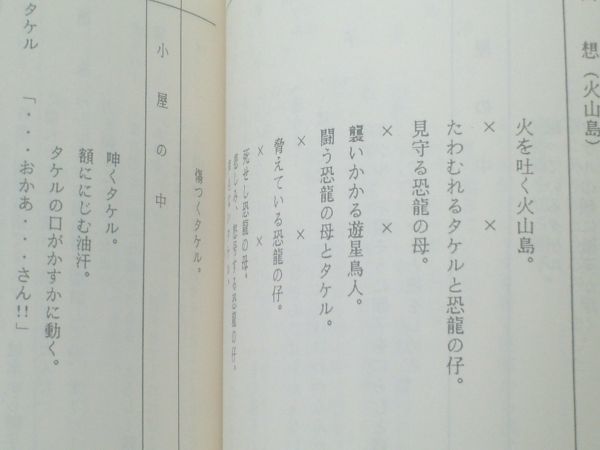 想（火山島）
火を吐く火山島。
× ×
たわむれるタケルと恐龍の仔。
見守る恐龍の母。
× ×
襲いかかる遊星鳥人。
闘う恐龍の母とタケル。
× ×
脅えている恐龍の仔。
× ×
死せし恐龍の母。
悲しみ、怒号する恐龍の仔。
傷つくタケル。
小屋の中
呻くタケル。
額ににじむ油汗。
タケルの口がかすかに動く。
タケル 「・・・おかあ・・・さん!!」